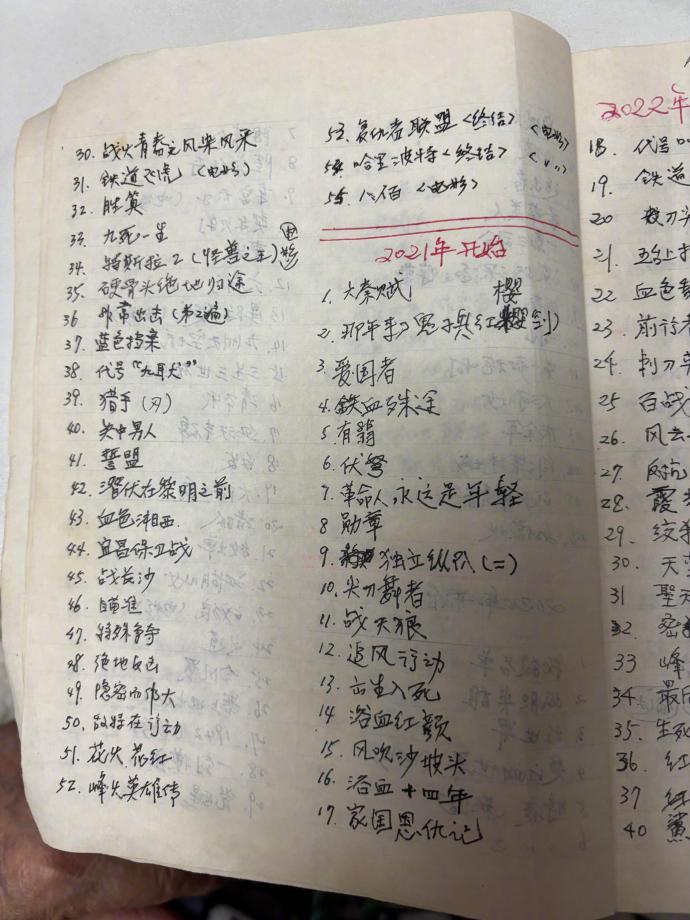 30. 战火青春之风柴风采
31. 鉄道飞虎〈电影〉
32. 胜算
33. 九死一生
34. 特斯拉2(怪兽之王) 电影
35. 硬骨头绝地归途
36 非常出击(第2遍)
37. 蓝色档案
38. 代号"九耳犬"
39. 猎手(刃)
40. 关中男人
41. 誓盟
42. 潜伏在黎明之前
43. 血色湘西.
44. 宜昌保卫战
45. 战长沙
46. 瞄准
47. 特殊争夺
48. 绝地反击
49. 隐密而伟大
50. 敌特在行动
51. 花火花红
52. 峰火英雄传
53. 复仇者联盟〈终结〉〈电影〉
54. 哈里波特〈终结〉〈〃〉
55. 八佰〈电影〉
2021年开始
1. 大秦赋
樱
2. 那年事,(男子兵红樱剑)
3. 爱国者
4. 鉄血殊途
5 有翡
6. 伏弩
7. 革命人永远是年轻
8 勋章
9. 独立纵队(二)
10. 尖刀舞者
11. 战天狼
12. 追风行动
13. 出生入死
14. 浴血红颜
15. 风吹沙坡头
16. 浴血十四年
17. 家国恩仇记
2022年
18. 代号
19. 鉄道
20
21.
22 血色
23. 前行者
24.
25 百战
26. 风云
27. 反抗
28. 霞
29. 绞
30. 天
31
32. 密
33 峰
34. 最后
35. 生死
36. 红
37
40 鲨